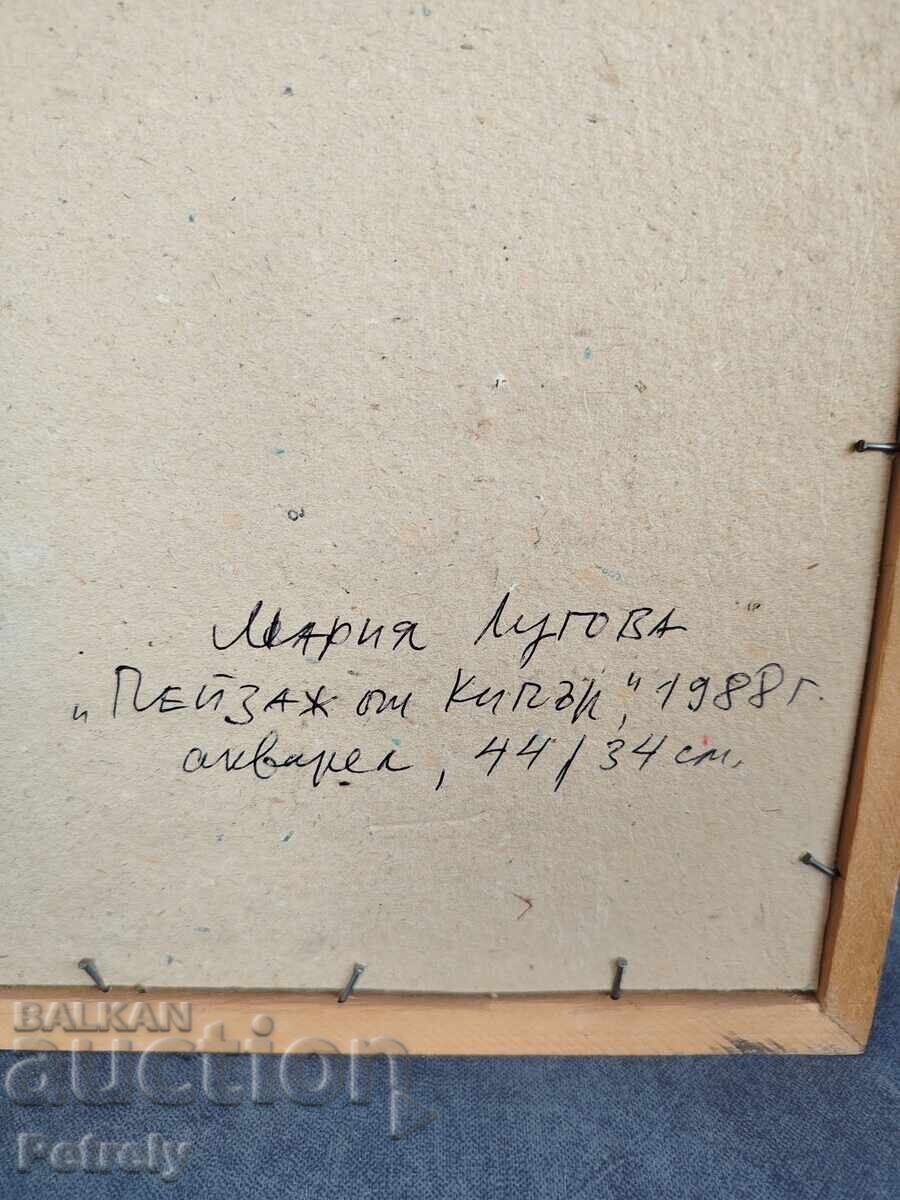 Мария Лугова
„Пейзаж от Кипър", 1988 г.
акварел, 44/34 см.
BALKAN
auction
Petrely